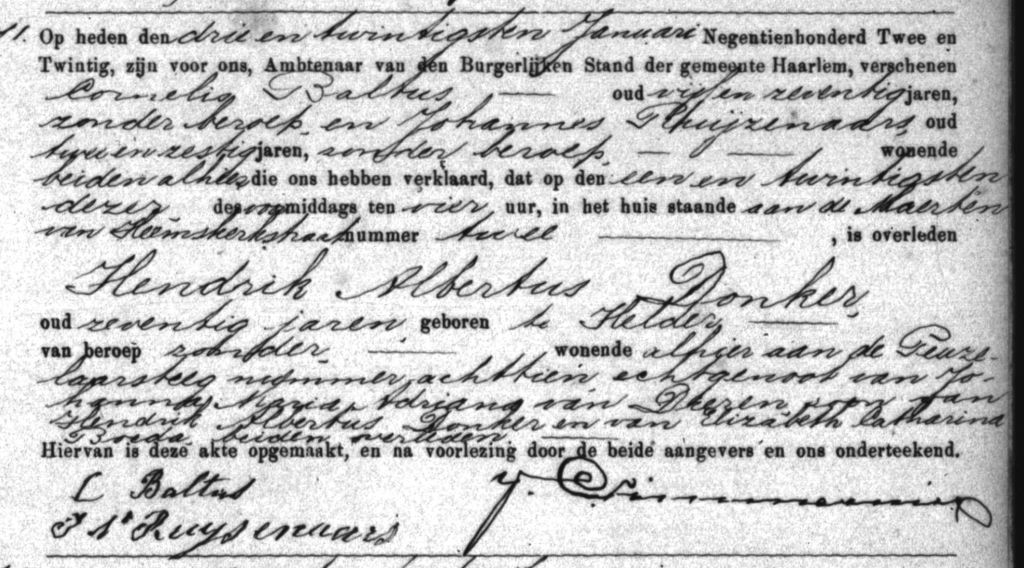 Op heden den drie en twintigsten Januari Negentienhonderd Twee en
Twintig, zijn voor ons, Ambtenaar van den Burgerlijken Stand der gemeente Haarlem, verschenen
Cornelis Baltus — oud vijf en zeventig jaren,
zonder beroep en Johannes Ruijzenaars, oud
twee en zestig jaren, zonder beroep, — — wonende
beiden alhier die ons hebben verklaard, dat op den een en twintigsten
dezer des voormiddags ten vier uur, in het huis staande aan de Maerten
van Heemskerkstraat nummer twee — , is overleden
Hendrik Albertus Donker,
oud zeventig jaren geboren te Helder, —
van beroep zonder, — wonende alhier aan de Peuze-
laarsteeg nummer achttien, echtgenoot van Jo-
hanna Maria Adriana van Deezen, zoon van
Hendrik Albertus Donker en van Elizabeth Catharina
beiden overleden —
Hiervan is deze akte opgemaakt, en na voorlezing door de beide aangevers en ons onderteekend.
C Baltus
Ruysenaars